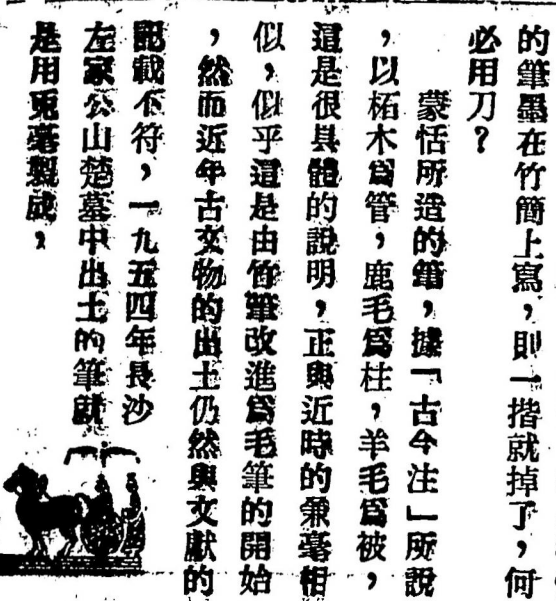 的筆墨在竹簡上寫，則一揩就掉了，何
必用刀？
蒙恬所造的筆，據「古今注」所說
，以柘木爲管，鹿毛爲柱，羊毛爲被，
這是很具體的說明，正與近時的兼毫相
似，似乎這是由竹筆改進爲毛筆的開始
，然而近年古文物的出土仍然與文獻的
記載不符，一九五四年長沙
左家公山楚墓中出土的筆就
是用兎毫製成，